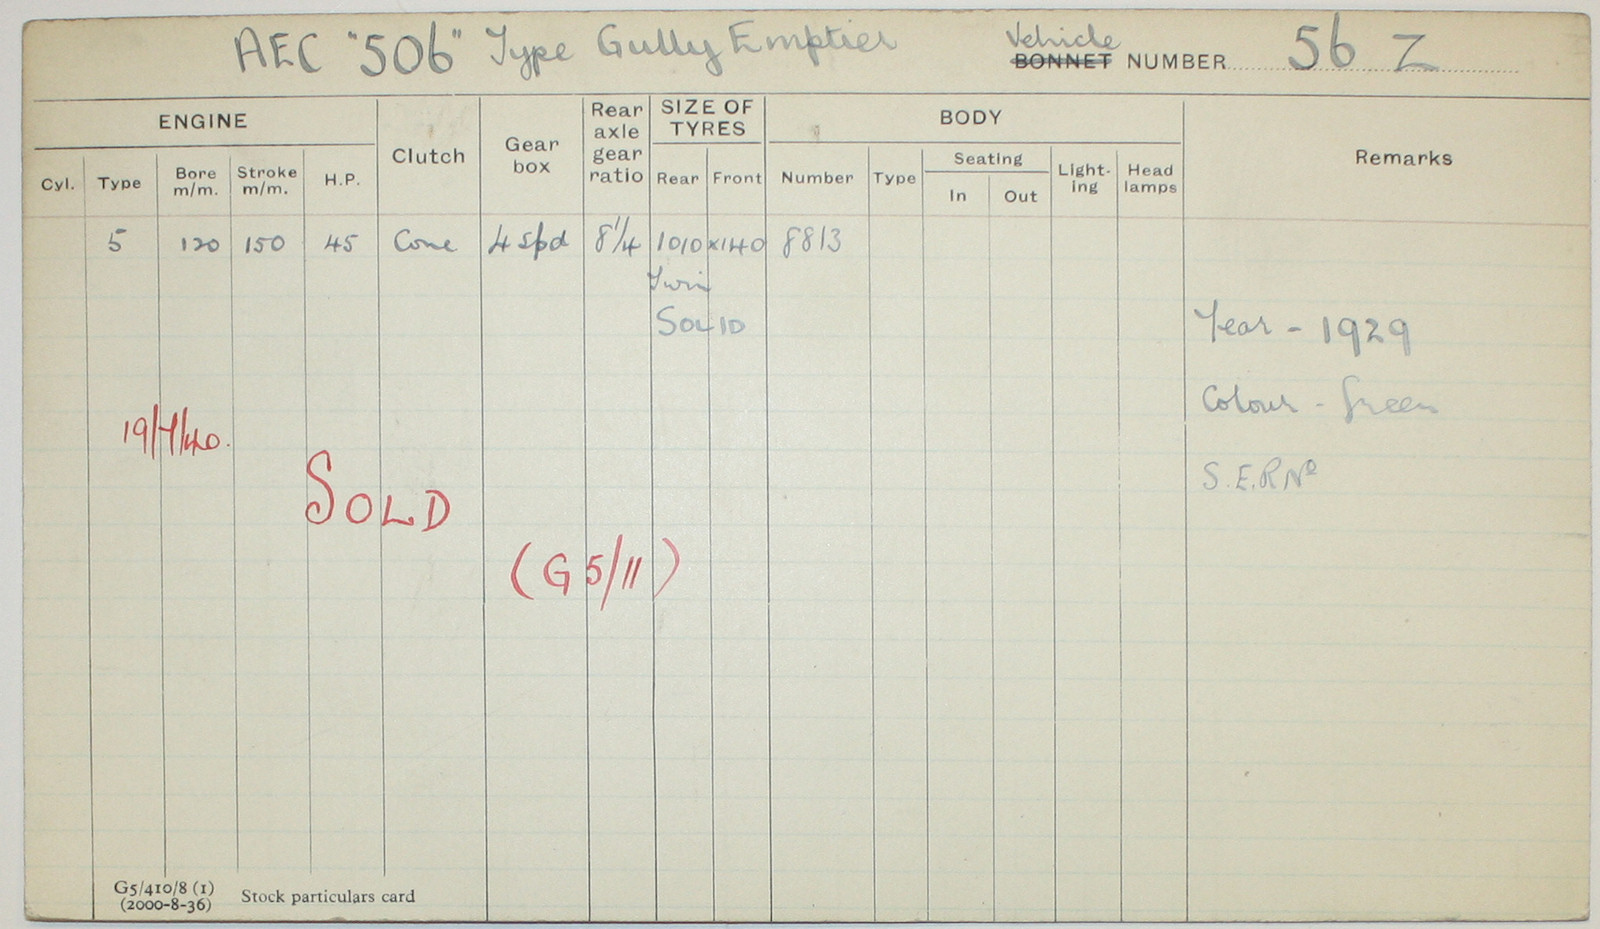 AEC "506" Type Gully Emptier Vehicle BONNET NUMBER 56 Z
ENGINE
Clutch
Gear box
Rear axle gear ratio
SIZE OF TYRES
BODY
Remarks
Cyl. Type Bore m/m. Stroke m/m. H.P. Rear Front Number Type Seating In Out Light-ing Head lamps
5 120 150 45 Cone 4 spd 8 1/4 1010 x 140 8813
Twin
SOLID
Year - 1929
Colour - Green
S.E.R Nº
19/7/40.
SOLD
(G 5/11)
G5/410/8 (1)
(2000-8-36)
Stock particulars card